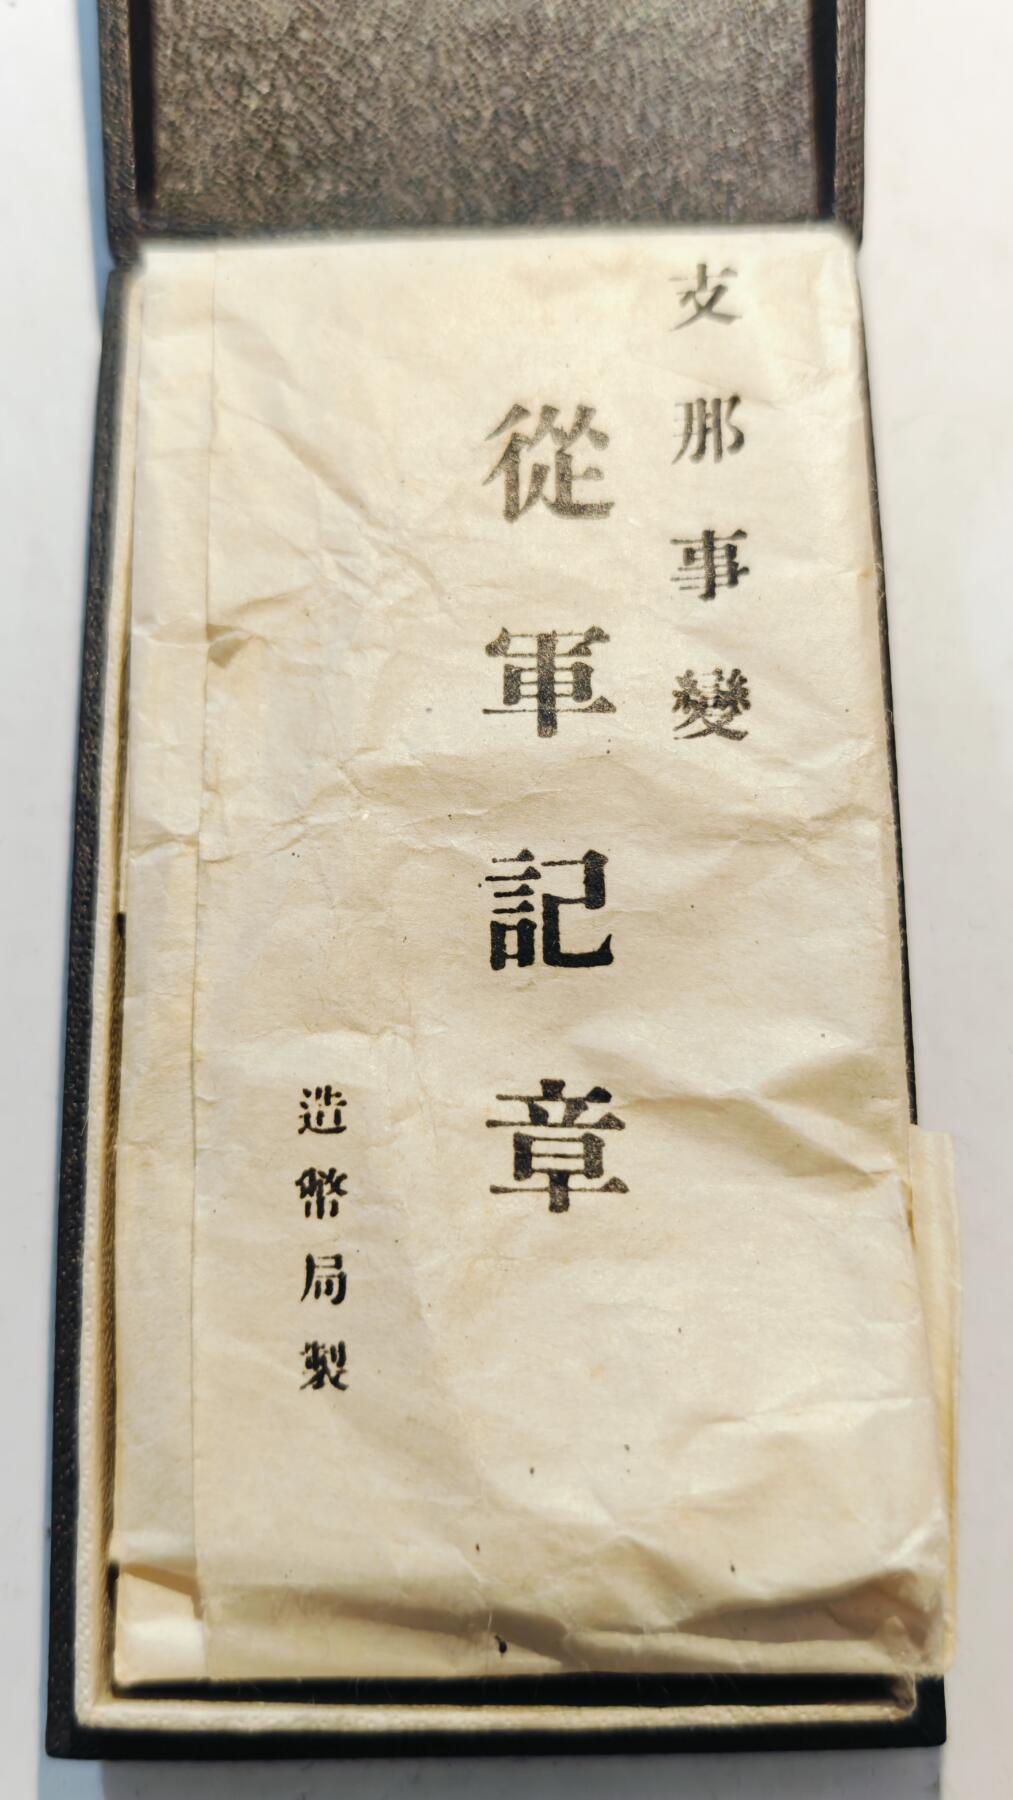 支那事變
從軍記章
造幣局製